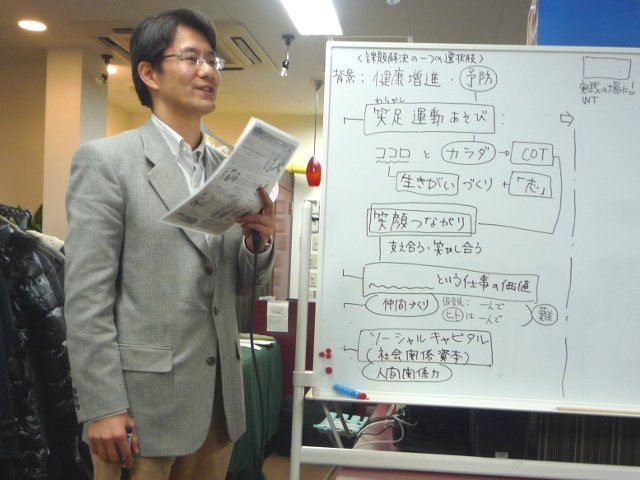 〈課題解決の一つの選択肢〉
背景：健康増進・予防
わらかし
笑足運動あそび
ココロ と カラダ → COT
生きがいづくり + 「志」
笑顔つながり
支え合う・笑い合う
という仕事の価値
仲間づくり 仮説：一人で
ヒトは一人で
難
ソーシャルキャピタル
(社会関係資本)
人間関係力
実践の場に!
WT